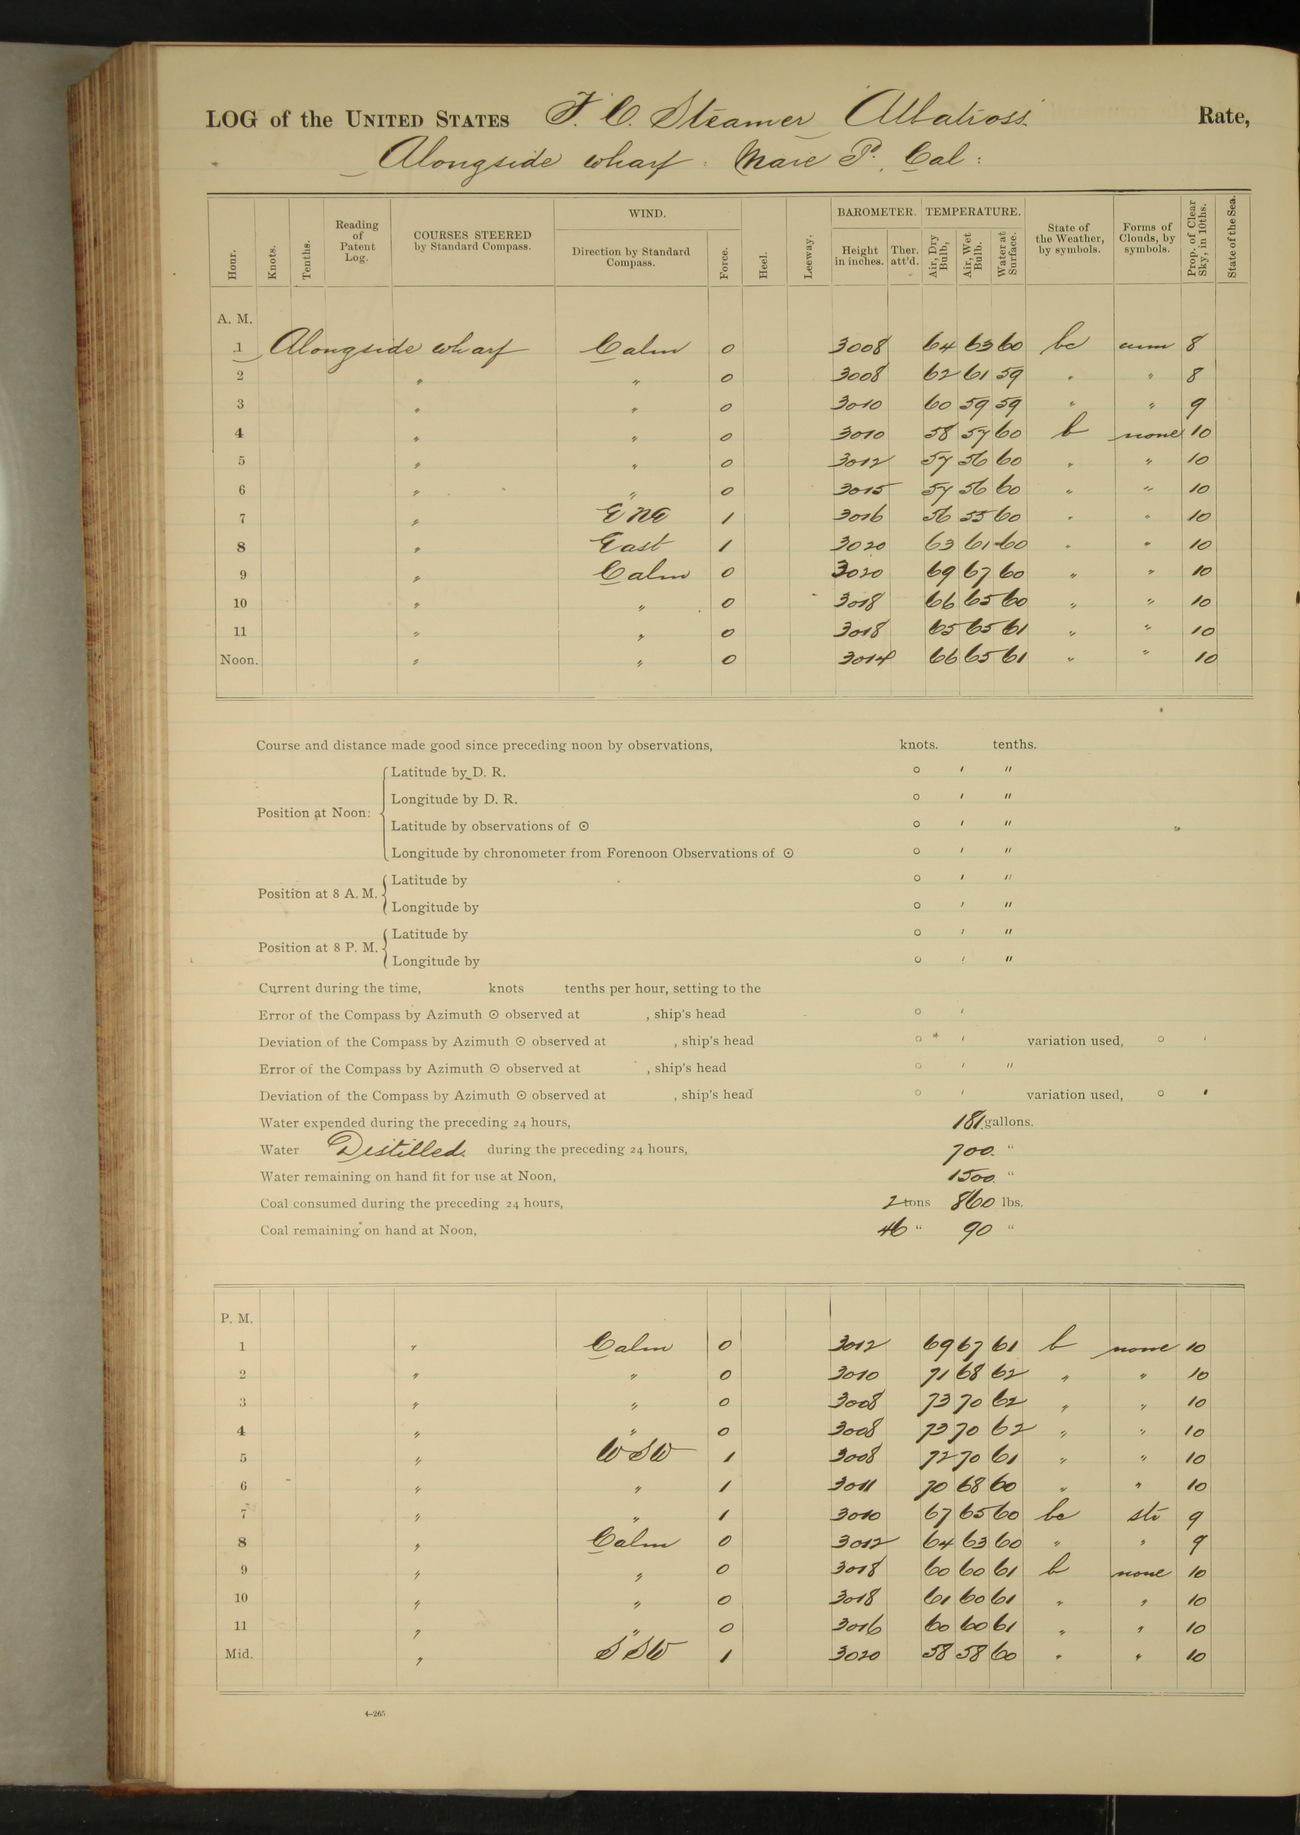 LOG of the UNITED STATES F. C. Steamer Albatross Rate,
Alongside wharf. Mare Id. Cal:
Hour. Knots. Tenths. Reading of Patent Log. COURSES STEERED by Standard Compass. WIND. Direction by Standard Compass. Force. Heel. Leeway. BAROMETER. Height in inches. Ther. att'd. TEMPERATURE. Air, Dry Bulb, Air, Wet Bulb. Water at Surface. State of the Weather, by symbols. Forms of Clouds, by symbols. Prop. of Clear Sky, in 10ths. State of the Sea.
A. M.
1 Alongside wharf Calm 0 3008 64 63 60 bc cum 8
2 " " 0 3008 62 61 59 " " 8
3 " " 0 3010 60 59 59 " " 9
4 " " 0 3010 58 57 60 b none 10
5 " " 0 3012 57 56 60 " " 10
6 " " 0 3015 57 56 60 " " 10
7 " ENE 1 3016 56 55 60 " " 10
8 " East 1 3020 63 61 60 " " 10
9 " Calm 0 3020 69 67 60 " " 10
10 " " 0 3018 66 65 60 " " 10
11 " " 0 3018 65 65 61 " " 10
Noon. " " 0 3014 66 65 61 " " 10
Course and distance made good since preceding noon by observations, knots. tenths.
Position at Noon: Latitude by D. R. ° ′ ″
Longitude by D. R. ° ′ ″
Latitude by observations of ⊙ ° ′ ″
Longitude by chronometer from Forenoon Observations of ⊙ ° ′ ″
Position at 8 A. M. Latitude by ° ′ ″
Longitude by ° ′ ″
Position at 8 P. M. Latitude by ° ′ ″
Longitude by ° ′ ″
Current during the time, knots tenths per hour, setting to the
Error of the Compass by Azimuth ⊙ observed at , ship's head ° ′
Deviation of the Compass by Azimuth ⊙ observed at , ship's head ° ′ variation used, ° ′
Error of the Compass by Azimuth ⊙ observed at , ship's head ° ′ ″
Deviation of the Compass by Azimuth ⊙ observed at , ship's head ° ′ variation used, ° ′
Water expended during the preceding 24 hours, 181 gallons.
Water Distilled. during the preceding 24 hours, 700. "
Water remaining on hand fit for use at Noon, 1500. "
Coal consumed during the preceding 24 hours, 2 tons 860 lbs.
Coal remaining on hand at Noon, 46 " 90 "
P. M.
1 " Calm 0 3012 69 67 61 b none 10
2 " " 0 3010 71 68 62 " " 10
3 " " 0 3008 73 70 62 " " 10
4 " " 0 3008 73 70 62 " " 10
5 " WSW 1 3008 72 70 61 " " 10
6 " " 1 3011 70 68 60 " " 10
7 " " 1 3010 67 65 60 bc str 9
8 " Calm 0 3012 64 63 60 " " 9
9 " " 0 3018 60 60 61 b none 10
10 " " 0 3018 61 60 61 " " 10
11 " " 0 3016 60 60 61 " " 10
Mid. " SSW 1 3020 58 58 60 " " 10
4-265